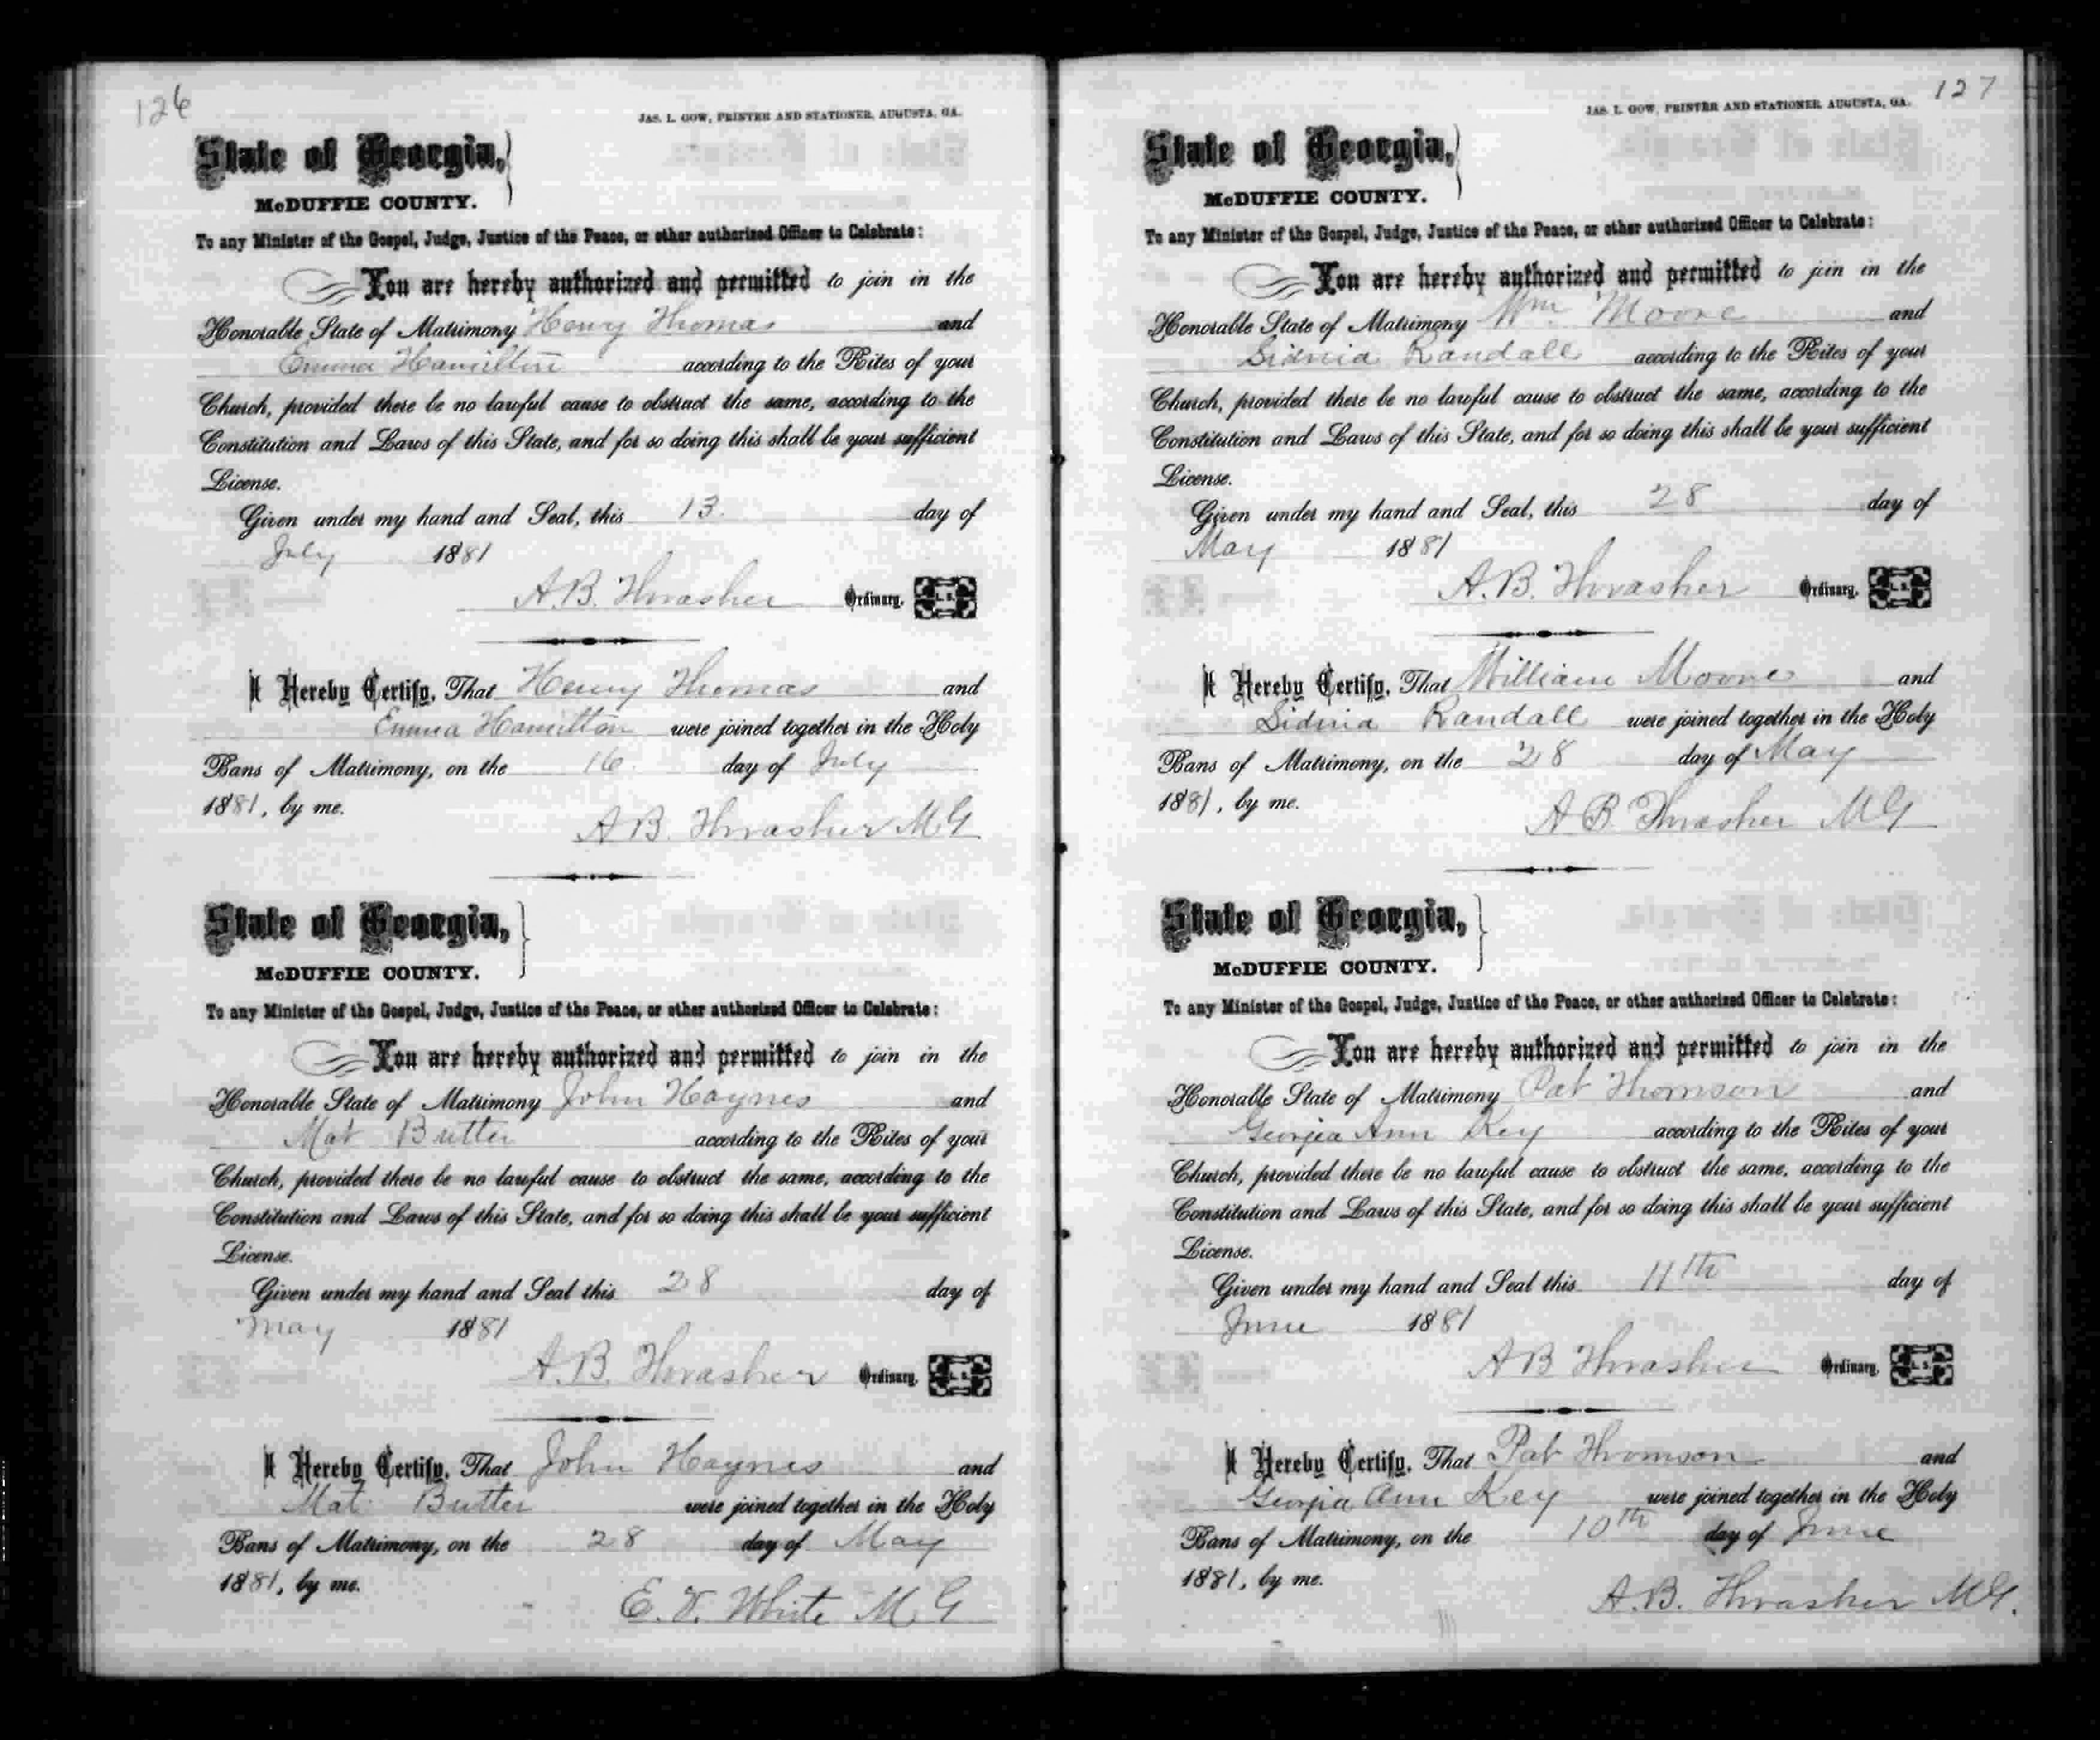 126
JAS. L. GOW, PRINTER AND STATIONER, AUGUSTA, GA.
State of Georgia,
McDUFFIE COUNTY.
To any Minister of the Gospel, Judge, Justice of the Peace, or other authorized Officer to Celebrate:
You are hereby authorized and permitted to join in the
Honorable State of Matrimony Henry Thomas and
Emma Hamilton according to the Rites of your
Church, provided there be no lawful cause to obstruct the same, according to the
Constitution and Laws of this State, and for so doing this shall be your sufficient
License.
Given under my hand and Seal, this 13. day of
July 1881
A.B. Thrasher Ordinary. L.S.
I Hereby Certify, That Henry Thomas and
Emma Hamilton were joined together in the Holy
Bans of Matrimony, on the 16. day of July
1881, by me.
A B. Thrasher M.G
State of Georgia,
McDUFFIE COUNTY.
To any Minister of the Gospel, Judge, Justice of the Peace, or other authorized Officer to Celebrate:
You are hereby authorized and permitted to join in the
Honorable State of Matrimony John Haynes and
Mat Butler according to the Rites of your
Church, provided there be no lawful cause to obstruct the same, according to the
Constitution and Laws of this State, and for so doing this shall be your sufficient
License.
Given under my hand and Seal this 28 day of
May 1881
A.B. Thrasher Ordinary. L.S.
I Hereby Certify, That John Haynes and
Mat. Butler were joined together in the Holy
Bans of Matrimony, on the 28 day of May
1881, by me.
E. V. White M.G
127
JAS. L. GOW, PRINTER AND STATIONER, AUGUSTA, GA.
State of Georgia,
McDUFFIE COUNTY.
To any Minister of the Gospel, Judge, Justice of the Peace, or other authorized Officer to Celebrate:
You are hereby authorized and permitted to join in the
Honorable State of Matrimony Wm Moore and
Sidnia Randall according to the Rites of your
Church, provided there be no lawful cause to obstruct the same, according to the
Constitution and Laws of this State, and for so doing this shall be your sufficient
License.
Given under my hand and Seal, this 28 day of
May 1881
A.B. Thrasher Ordinary. L.S.
I Hereby Certify, That William Moore and
Sidnia Randall were joined together in the Holy
Bans of Matrimony, on the 28 day of May
1881, by me.
A B. Thrasher MG
State of Georgia,
McDUFFIE COUNTY.
To any Minister of the Gospel, Judge, Justice of the Peace, or other authorized Officer to Celebrate:
You are hereby authorized and permitted to join in the
Honorable State of Matrimony Pat Thomson and
Georgia Ann Key according to the Rites of your
Church, provided there be no lawful cause to obstruct the same, according to the
Constitution and Laws of this State, and for so doing this shall be your sufficient
License.
Given under my hand and Seal this 11th day of
June 1881
A B Thrasher Ordinary. L.S.
I Hereby Certify, That Pat Thomson and
Georgia Ann Key were joined together in the Holy
Bans of Matrimony, on the 10th day of June
1881, by me.
A.B. Thrasher MG.